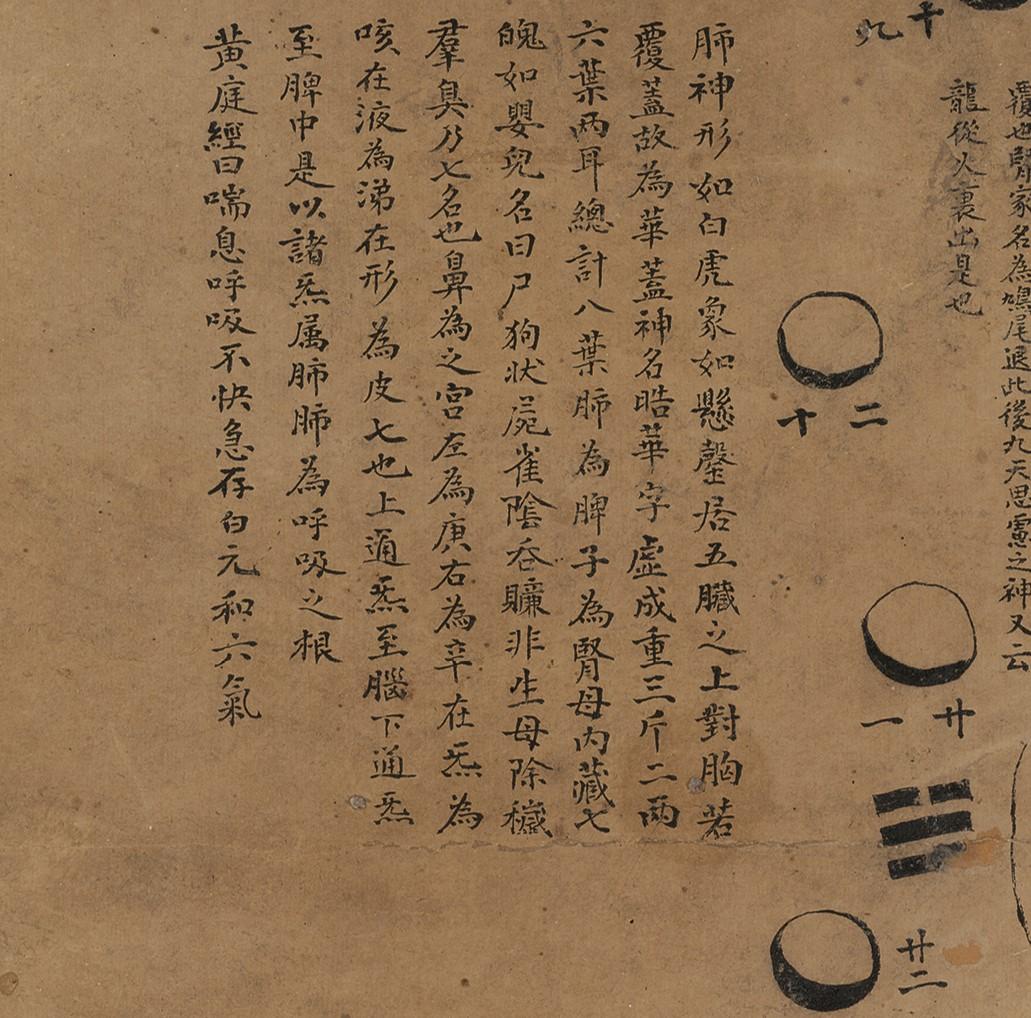 覆也腎家名為鳩尾退此後九天思慮之神又云
龍從火裏出是也
十九
二十
廿一
廿二
肺神形如白虎象如懸罄居五臟之上對胸若
覆蓋故為華蓋神名晧華字虛成重三斤二兩
六葉兩耳總計八葉肺為脾子為腎母內藏七
魄如嬰兒名曰尸狗伏屍雀陰吞賊非生母除穢
羣臭乃七名也鼻為之宮左為庚右為辛在炁為
咳在液為涕在形為皮七也上通炁至腦下通炁
至脾中是以諸炁属肺肺為呼吸之根
黃庭經曰喘息呼吸不快急存白元和六氣